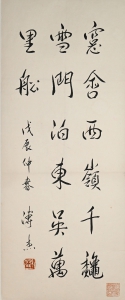 窓含西嶺千龝
雪門泊東吳萬
里船
戊辰仲春
溥杰